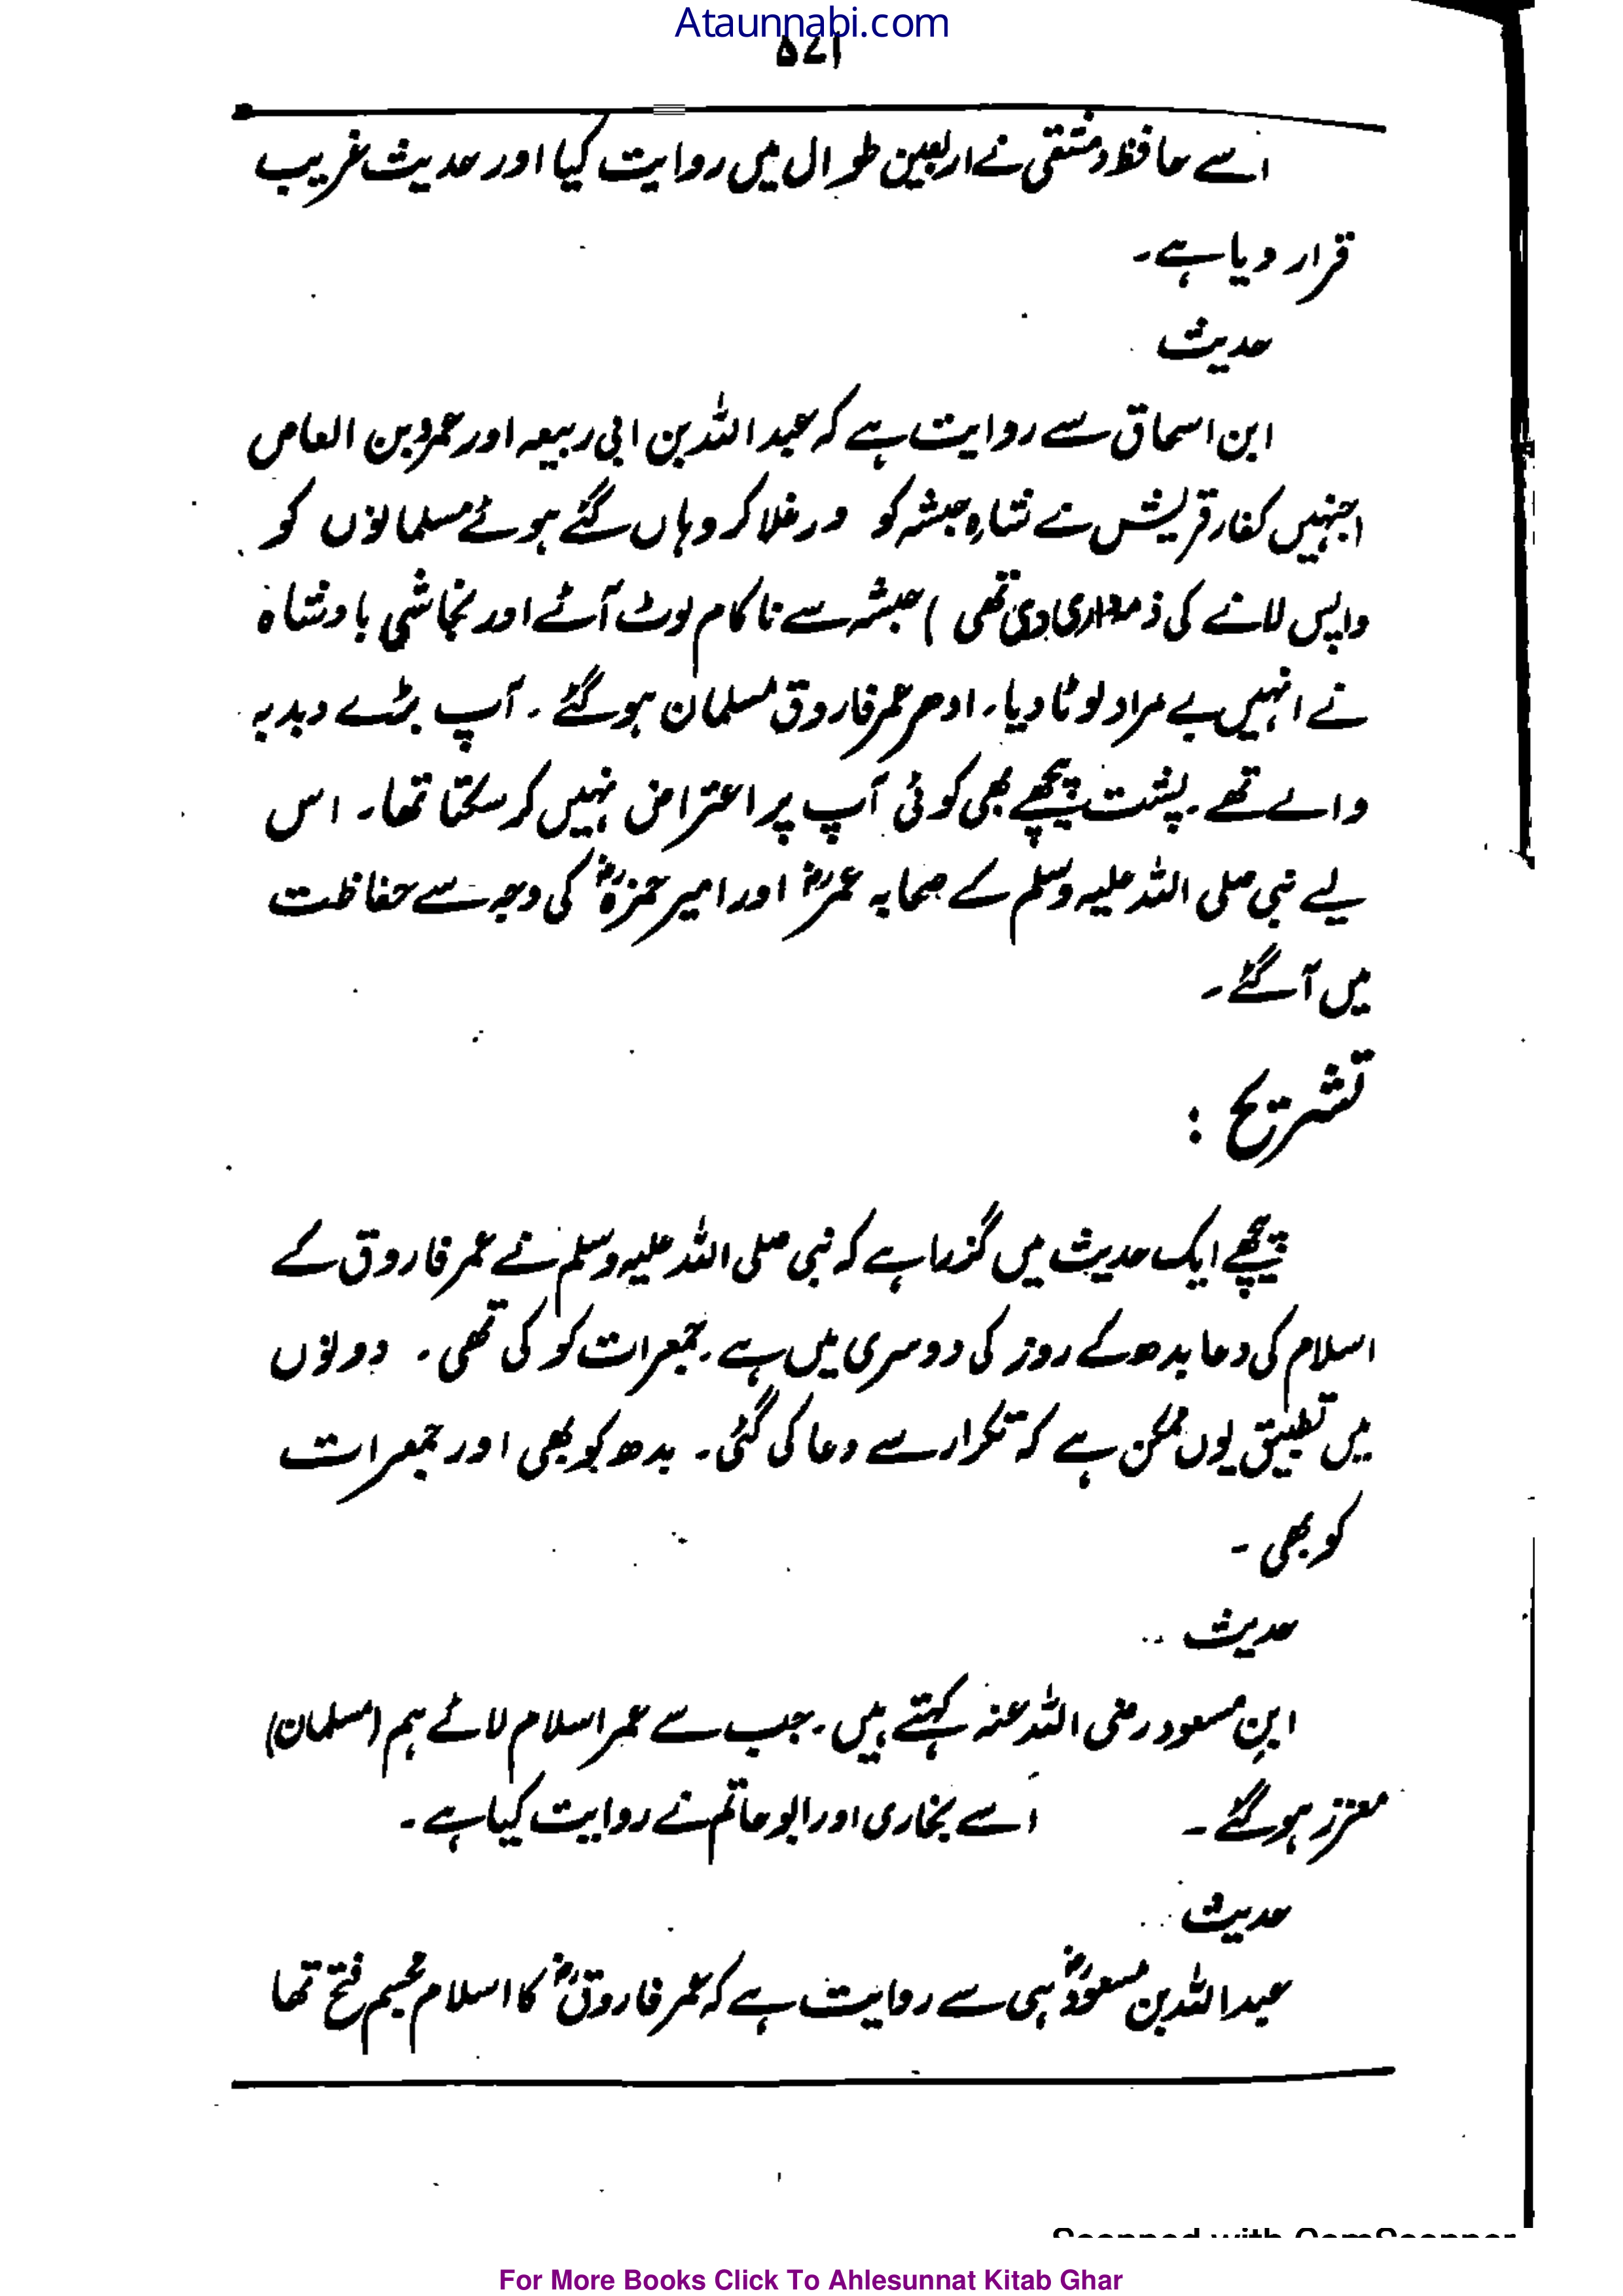 Ataunnabi.com
۵۷۱
اسے حافظ دمشقی نے اربعین طوال میں روایت کیا اور حدیث غریب
قرار دیا ہے۔
حدیث
ابن اسحاق سے روایت ہے کہ عبد اللہ بن ابی ربیعہ اور عمرو بن العاص
(جنہیں کفار قریش نے شاہِ حبشہ کو ورغلا کر وہاں گئے ہوئے مسلمانوں کو
واپس لانے کی ذمہ داری دی تھی) حبشہ سے ناکام لوٹ آئے اور نجاشی بادشاہ
نے انہیں بے مراد لوٹا دیا۔ ادھر عمر فاروق مسلمان ہو گئے۔ آپ بڑے دبدبہ
والے تھے۔ پشت پیچھے بھی کوئی آپ پر اعتراض نہیں کر سکتا تھا۔ اس
لیے نبی صلی اللہ علیہ وسلم کے صحابہ عمرؓ اور امیر حمزہؓ کی وجہ سے حفاظت
میں آ گئے۔
تشریح :
پیچھے ایک حدیث میں گزرا ہے کہ نبی صلی اللہ علیہ وسلم نے عمر فاروق کے
اسلام کی دعا بدھ کے روز کی دوسری میں ہے۔ جمعرات کو کی تھی۔ دونوں
میں تطبیق یوں ممکن ہے کہ تکرار سے دعا کی گئی۔ بدھ کو بھی اور جمعرات
کو بھی۔
حدیث
ابنِ مسعود رضی اللہ عنہ کہتے ہیں۔ جب سے عمر اسلام لائے ہم (مسلمان)
معزز ہو گئے۔ اسے بخاری اور ابو حاتم نے روایت کیا ہے۔
حدیث
عبد اللہ بن مسعودؓ ہی سے روایت ہے کہ عمر فاروقؓ کا اسلام مجسم فتح تھا
Scanned with CamScanner
For More Books Click To Ahlesunnat Kitab Ghar